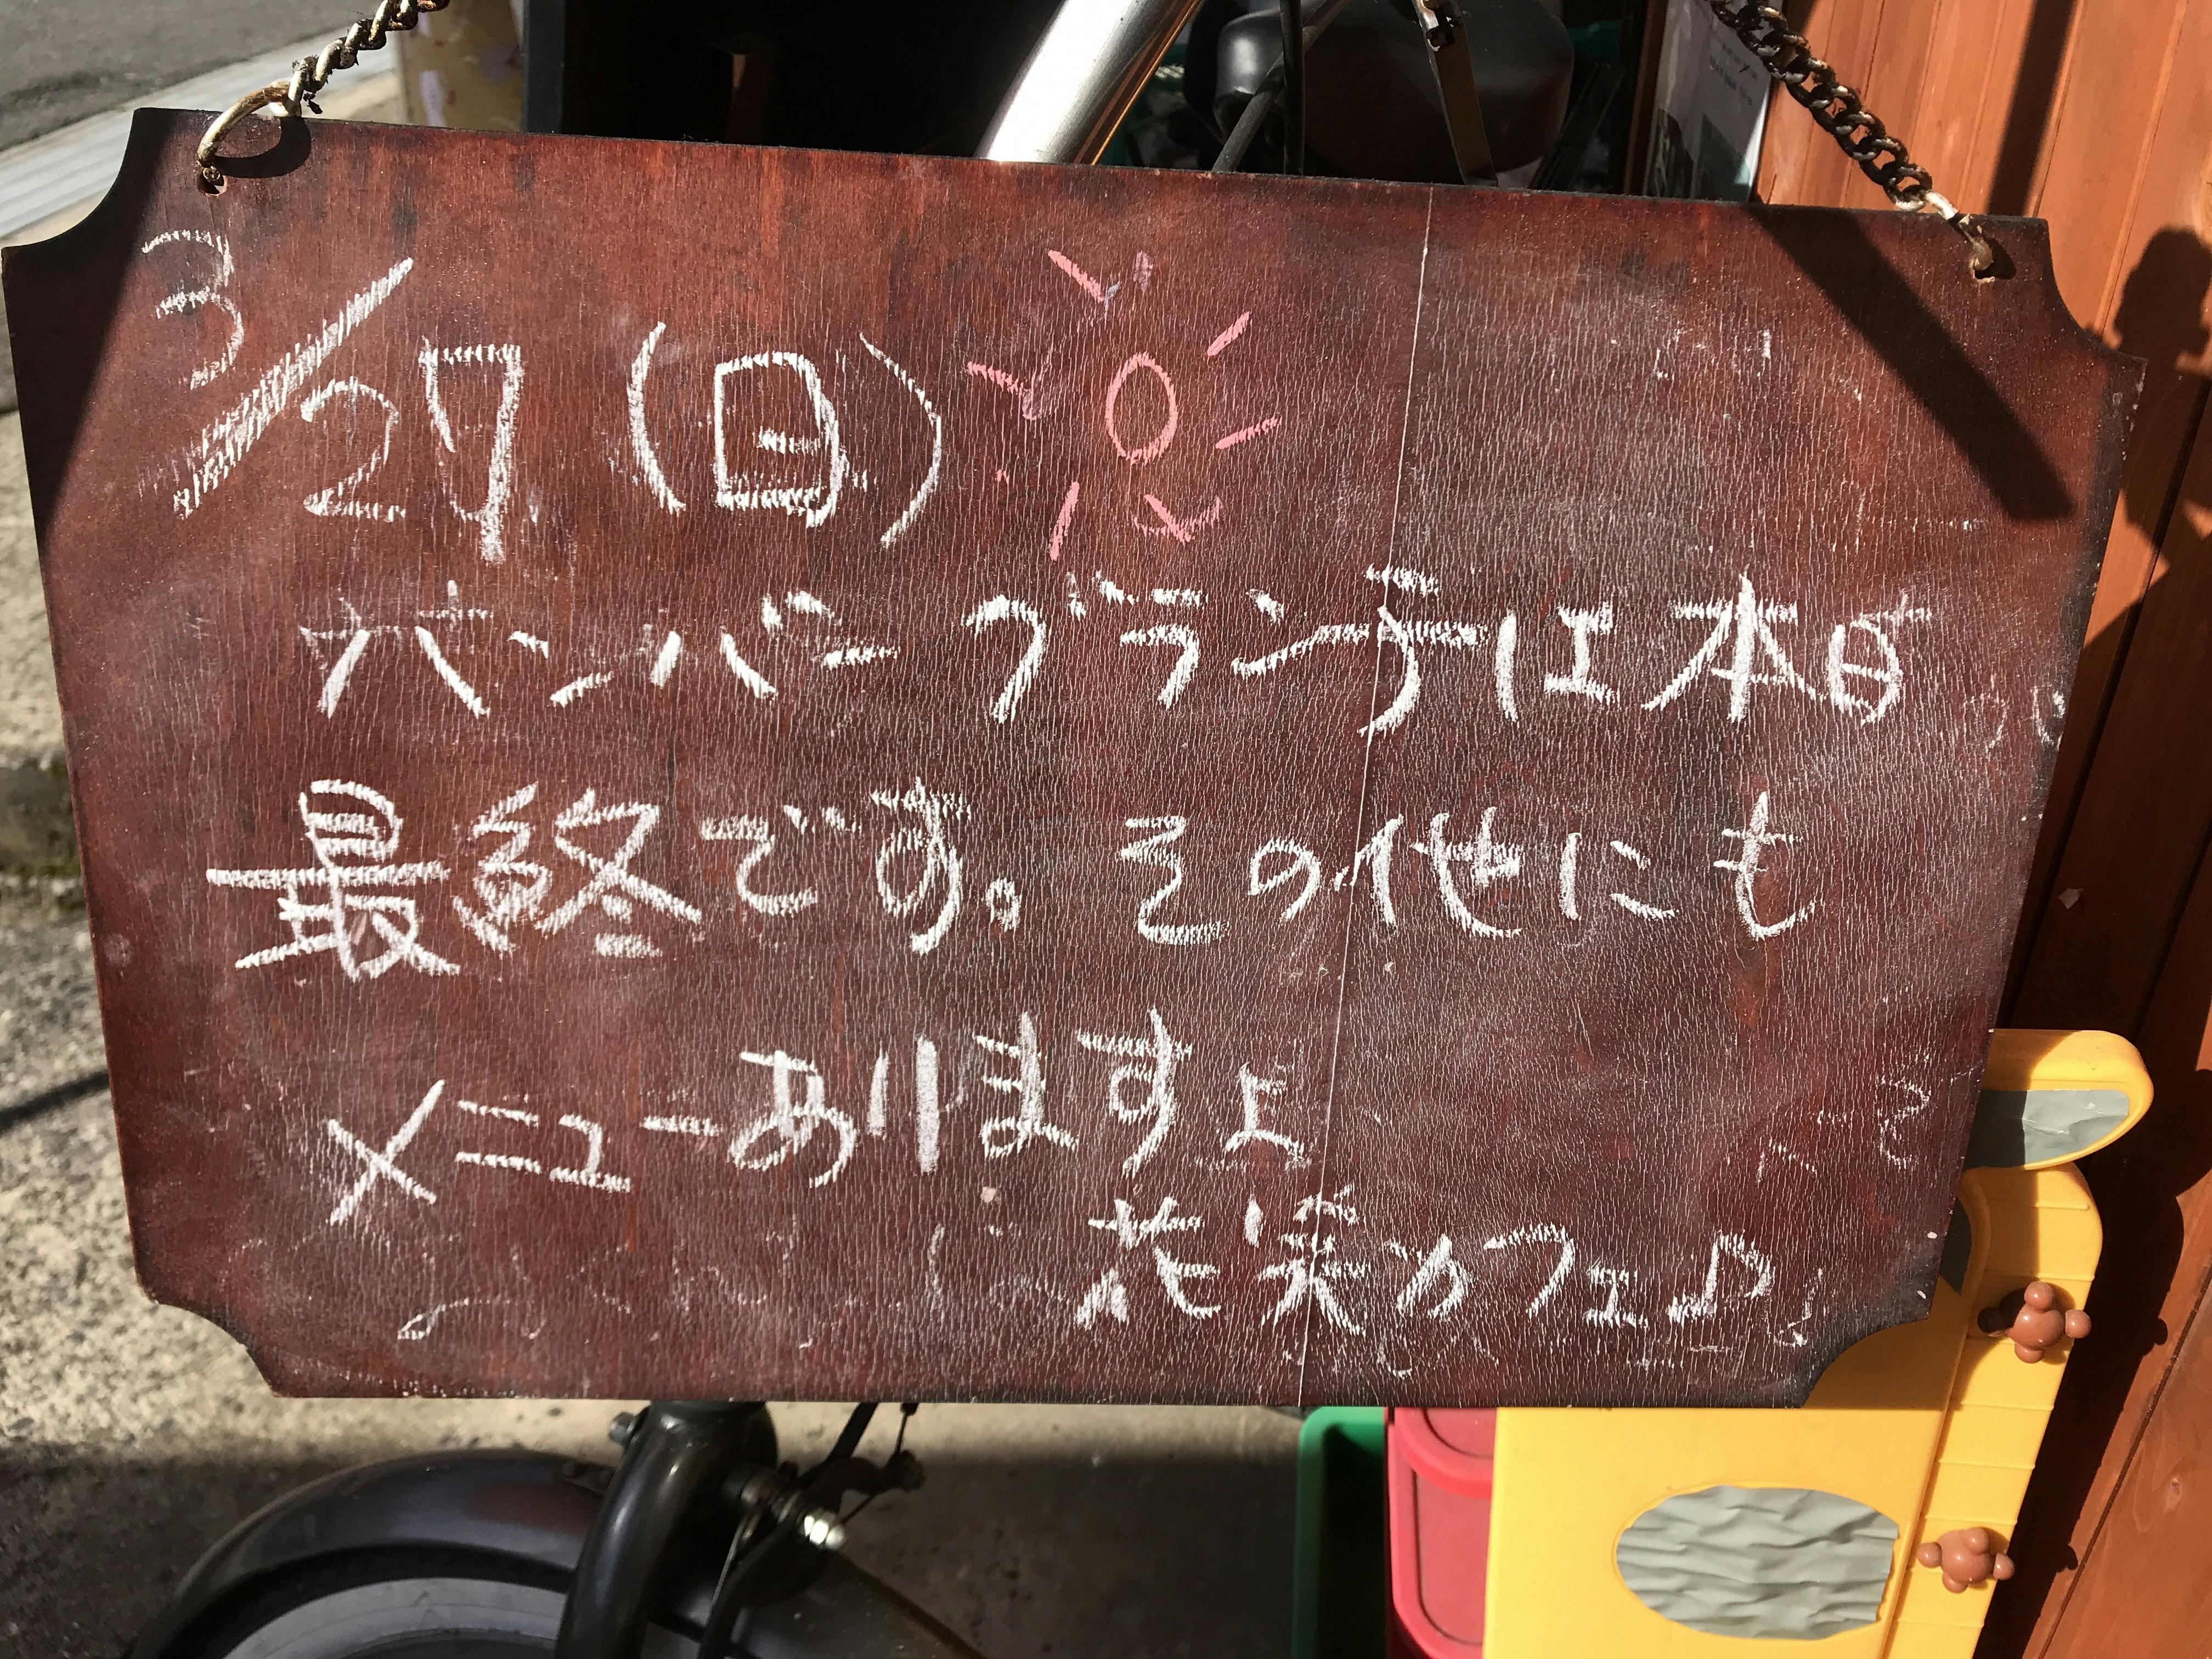 3/27(日)
ハンバーグランチは本日
最終です。その他にも
メニューありますよ
花笑カフェ♪